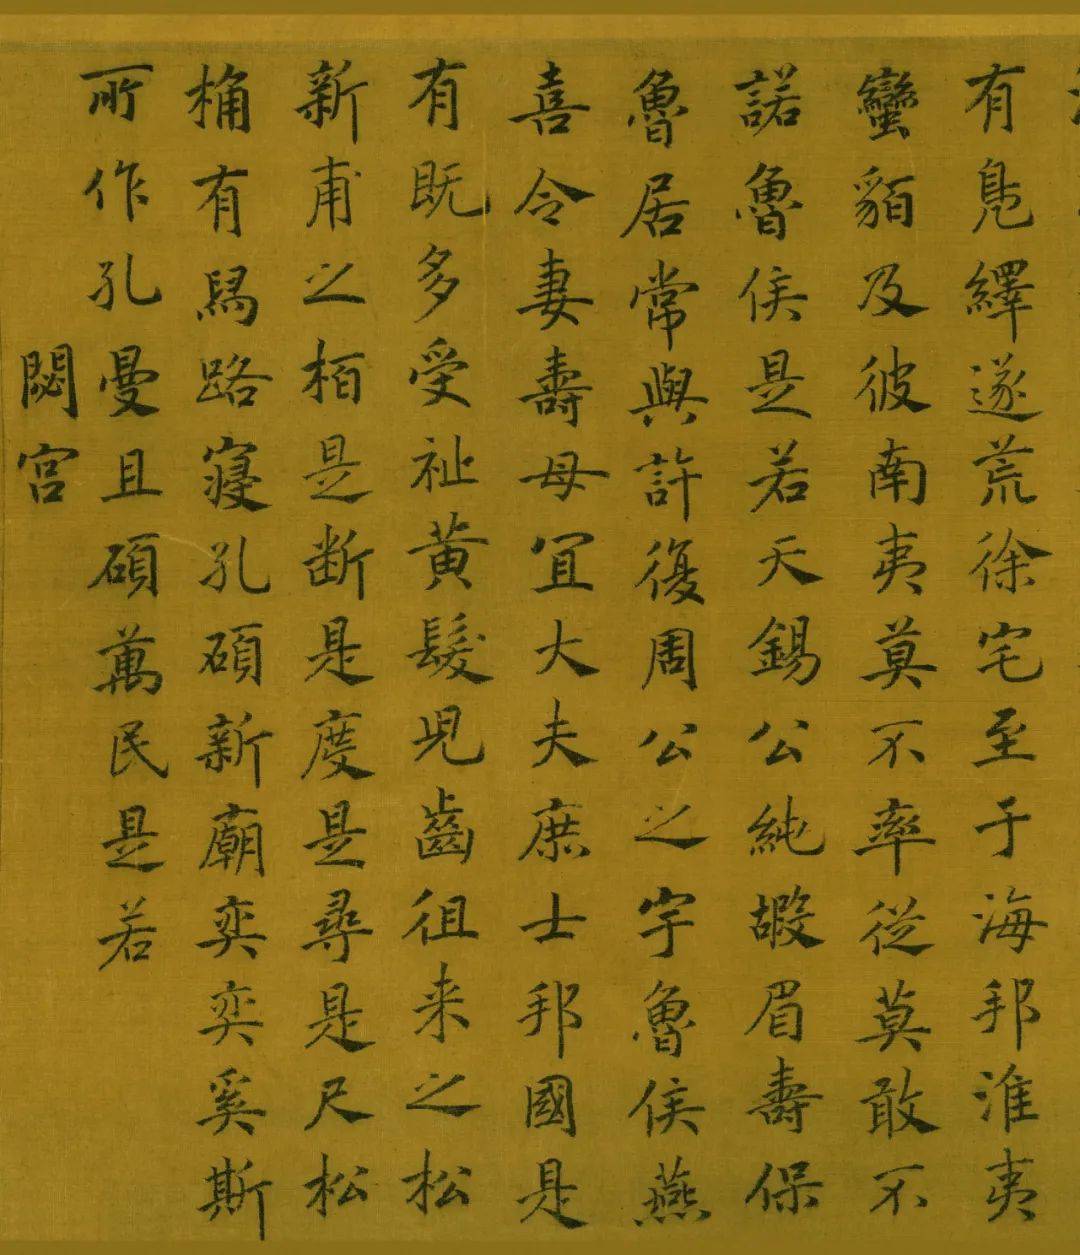 有鳬繹遂荒徐宅至于海邦淮夷
蠻貊及彼南夷莫不率從莫敢不
諾魯侯是若天錫公純嘏眉壽保
魯居常與許復周公之宇魯侯燕
喜令妻壽母宜大夫庶士邦國是
有既多受祉黃髮兒齒徂来之松
新甫之栢是断是度是尋是尺松
桷有舄路寢孔碩新廟奕奕奚斯
所作孔曼且碩萬民是若
閟宮